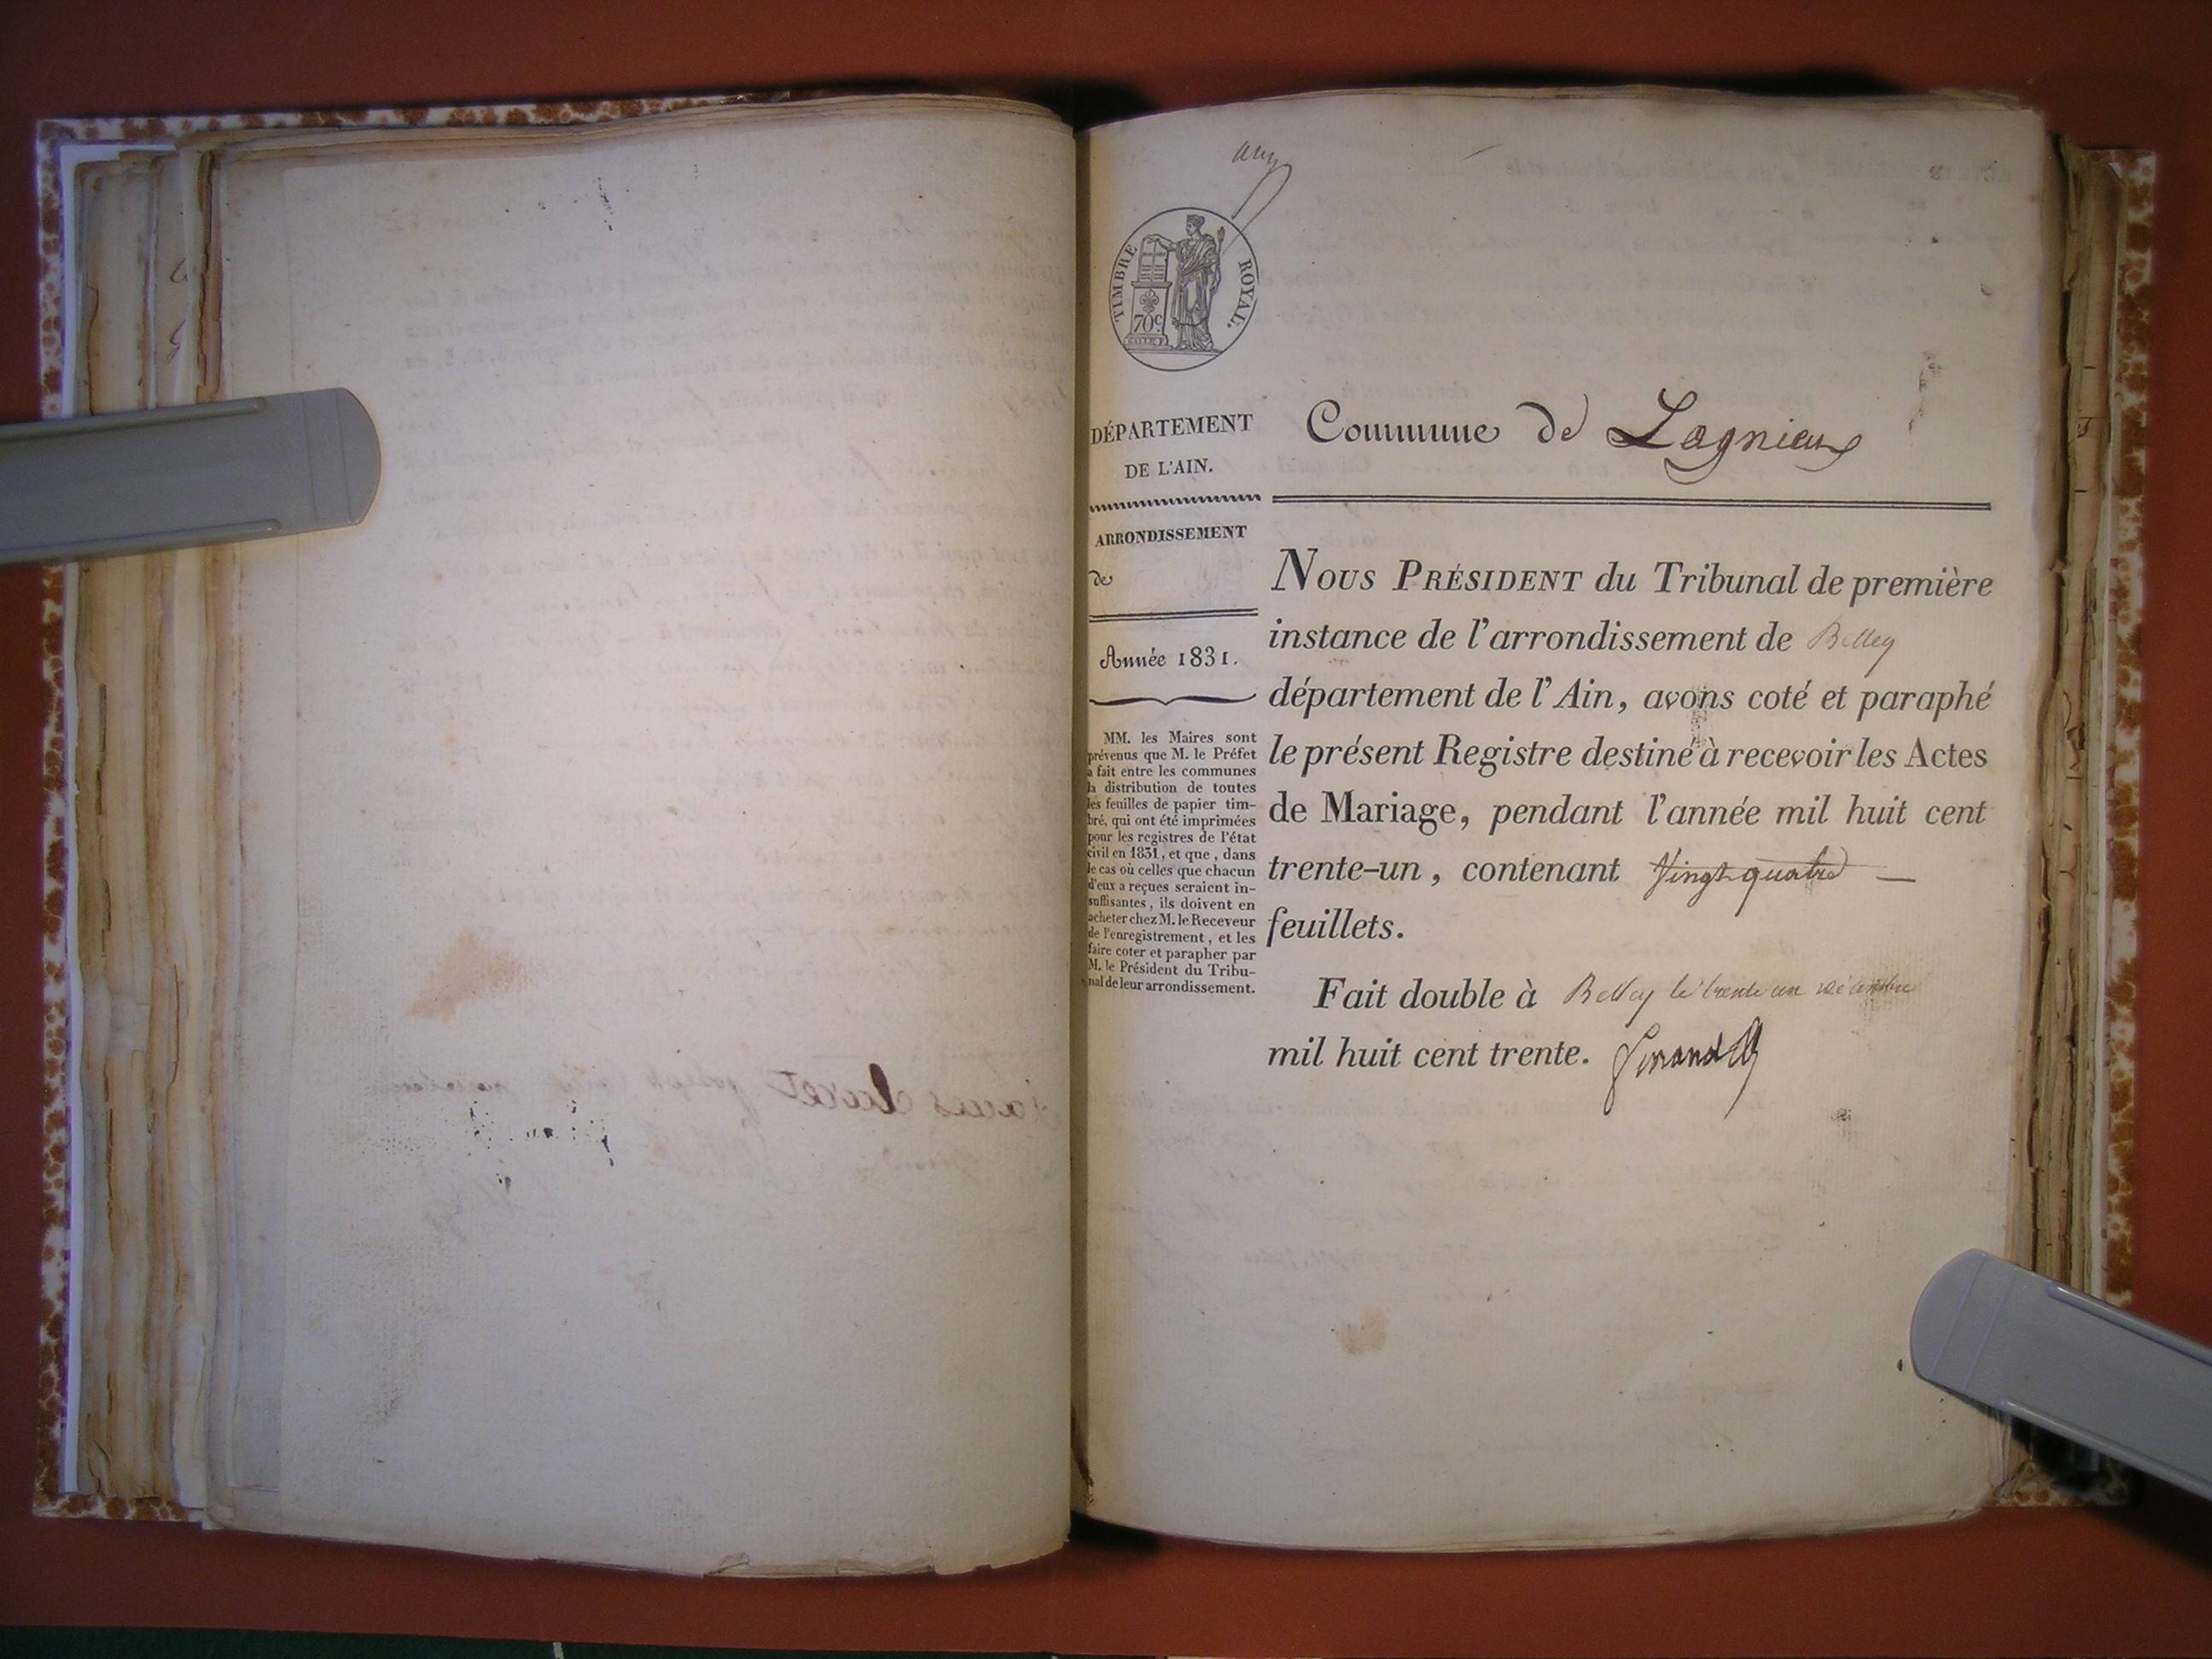 TIMBRE ROYAL.
70c
DÉPARTEMENT
DE L'AIN.
Commune de Lagnieu
ARRONDISSEMENT
de
Année 1831.
MM. les Maires sont
prévenus que M. le Préfet
a fait entre les communes
la distribution de toutes
les feuilles de papier tim-
bré, qui ont été imprimées
pour les registres de l'état
civil en 1831, et que, dans
le cas où celles que chacun
d'eux a reçues seraient in-
suffisantes, ils doivent en
acheter chez M. le Receveur
de l'enregistrement, et les
faire coter et parapher par
M. le Président du Tribu-
nal de leur arrondissement.
NOUS PRÉSIDENT du Tribunal de première
instance de l'arrondissement de Belley
département de l'Ain, avons coté et paraphé
le présent Registre destiné à recevoir les Actes
de Mariage, pendant l'année mil huit cent
trente-un, contenant Vingt quatre
feuillets.
Fait double à Belley le trente un décembre
mil huit cent trente.